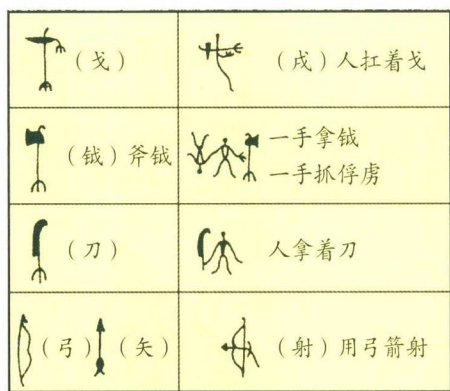 （戈）
（戍）人扛着戈
（钺）斧钺
一手拿钺
一手抓俘虏
（刀）
人拿着刀
（弓）
（矢）
（射）用弓箭射